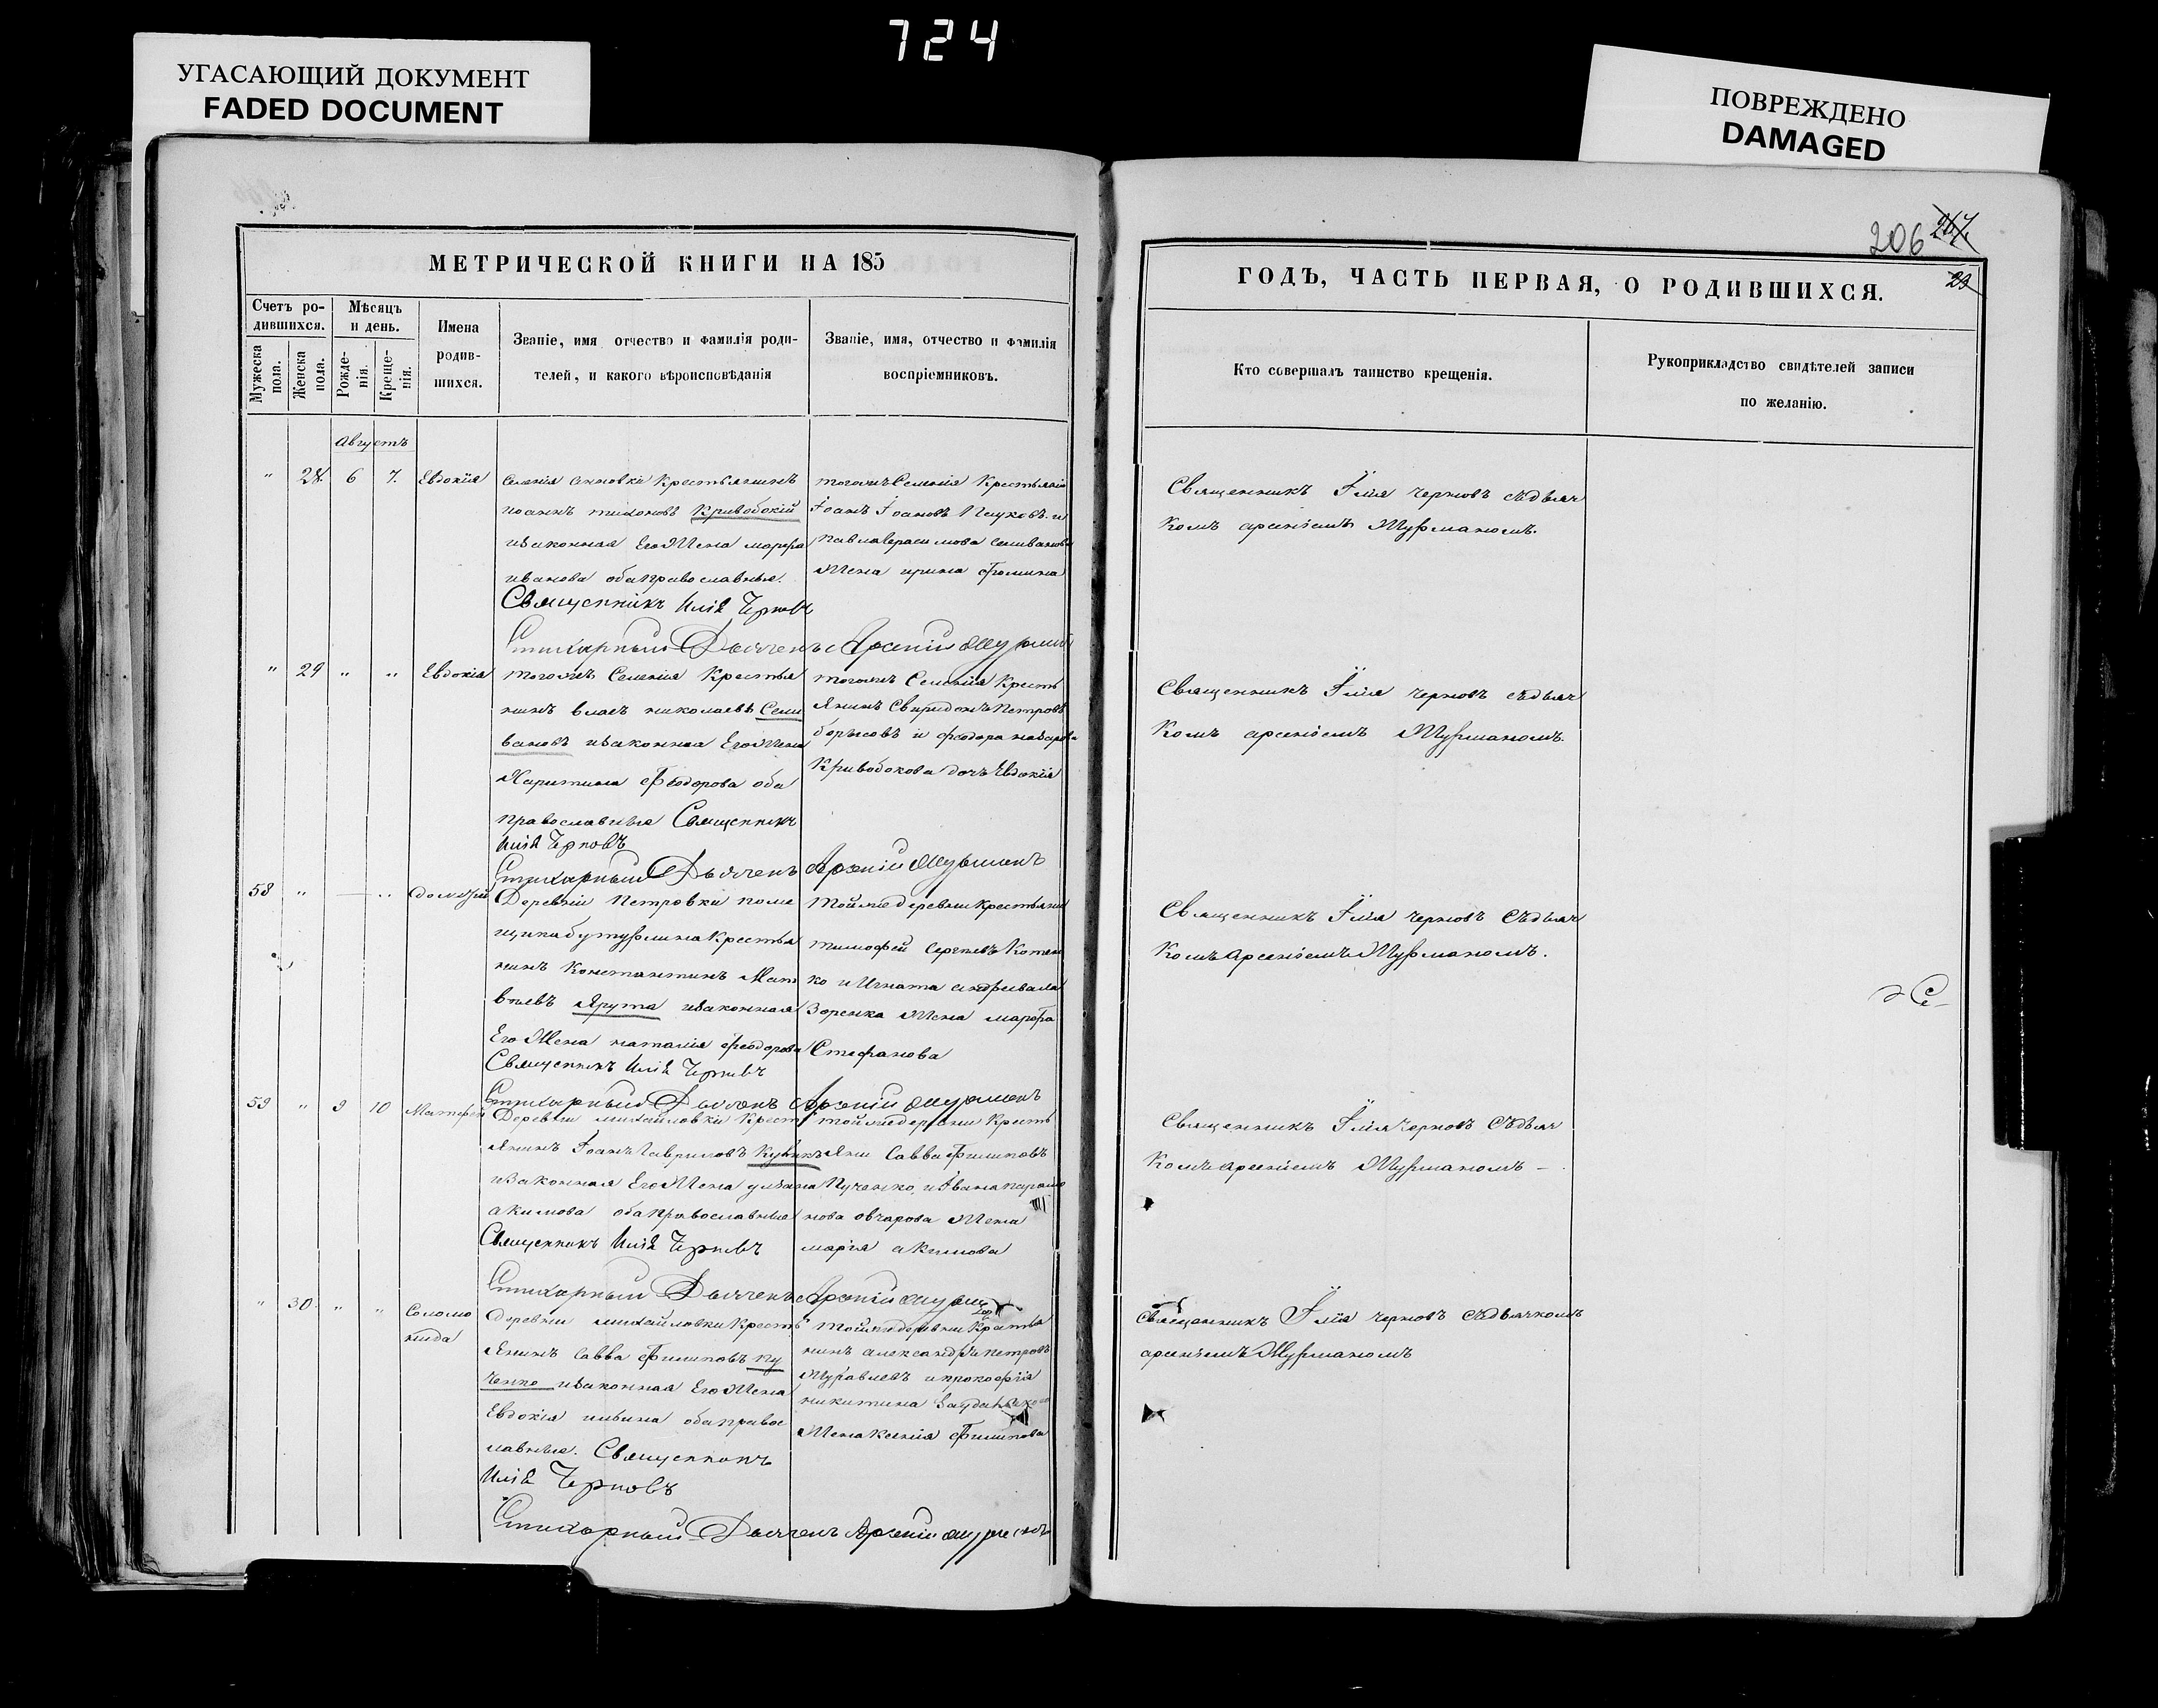 724
УГАСАЮЩИЙ ДОКУМЕНТ
FADED DOCUMENT
ПОВРЕЖДЕНО
DAMAGED
206 267
29
МЕТРИЧЕСКОЙ КНИГИ НА 185
ГОДЪ, ЧАСТЬ ПЕРВАЯ, О РОДИВШИХСЯ.
Счетъ ро-
дившихся.
Мѣсяцъ
и день.
Мужеска
пола.
Женска
пола.
Рожде-
нія.
Креще-
нія.
Имена
родив-
шихся.
Званіе, имя отчество и фамилія роди-
телей, и какого вѣроисповѣданія
Званіе, имя, отчество и фамилія
воспріемниковъ.
Кто совершалъ таинство крещенія.
Рукоприкладство свидѣтелей записи
по желанію.
Августъ
" 28. 6 7. Евдокія
Селенія Крестьянинъ
иоаннъ тихоновъ Кривобокій
изаконная Его Жена марфа
иванова обаправославныя.
Священникъ Илія Черновъ
Стихарный Дьячекъ Арсеній
тогожъ Селенія Крестьянин
Іоанъ Іоановъ и
Павла Герасимова Селиванов
Жена ирина Фомина
Священникъ Їлія черновъ съдьяч
комъ арсеніемъ Журманомъ.
" 29 " " Евдокія
тогожъ Селенія Крестья
нинъ влась николаевъ Сели
вановъ изаконная Его Жена
Харитина Феодорова оба
православныя Священникъ
Илія Черновъ
Стихарный Дьячекъ Арсеній Журманъ
тогожъ Селенія Кресть
Янинъ Свиридонъ Петровъ
борисовъ и феодора назарова
Кривобокова дочь Евдокія
Священникъ Їлія черновъ съдьяч
Комъ арсеніемъ Журманомъ.
58 " — "
Деревни Петровки поме
щика бутурлина Крестья
нинъ Константинъ Мат
вѣевъ Ярута изаконная
Его Жена наталія феодорова
Священникъ Илія Черновъ
Стихарный Дьячекъ Арсеній Журманъ
тойжедеревни Крестьянин
тимофей Сергѣевъ
ко и Игната андреева
Жена марфа
Стефанова
Священникъ Їлія черновъ Съдьяч
Комъ Арсеніемъ Журманомъ.
59 " 9 10 Матфей
Деревни михайловки Крест
Янинъ Іоанъ Гавриловъ
изаконная Его Жена
акимова обаправославныя
Священникъ Илія Черновъ
Стихарный Дьячекъ Арсеній
тойжедеревни Кресть
Янин Савва Филиповъ
Пученко, и Ивана
нова овчарова Жена
марія акимова
Священникъ Їлія черновъ Съдьяч
Комъ арсеніемъ Журманомъ —
" 30 " " Соломо
нида
деревни михайловки Кресть
Янинъ Савва Филиповъ Пу
ченко изаконная Его Жена
Евдокія ильина обаправос
лавныя. Священникъ
Илія Черновъ
Стихарный Дьячекъ Арсеній Журманъ
тойжедеревни Крестья
нинъ александръ петровъ
Журавлевъ и прокофія
никитина
Жена Ксенія Филипова
Священникъ Їлія черновъ съдьячкомъ
арсеніемъ Журманомъ